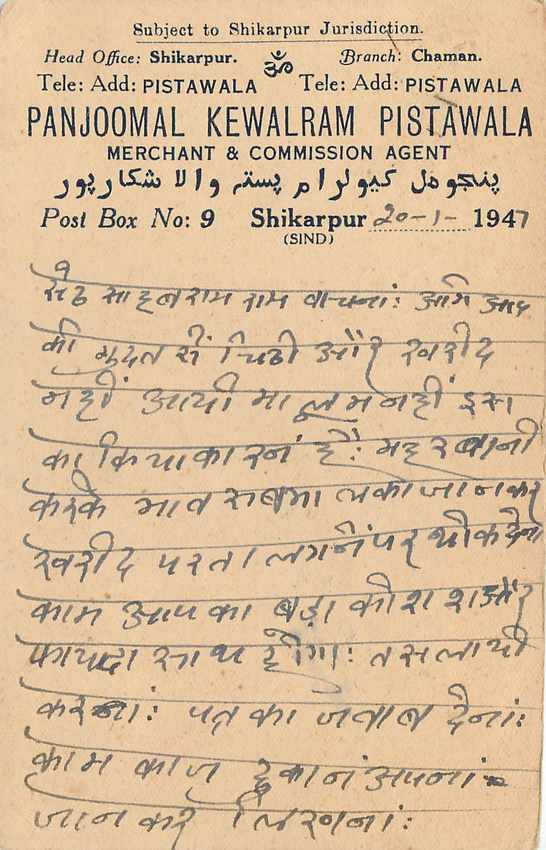 Subject to Shikarpur Jurisdiction.
Head Office: Shikarpur. ॐ Branch: Chaman.
Tele: Add: PISTAWALA Tele: Add: PISTAWALA
PANJOOMAL KEWALRAM PISTAWALA
MERCHANT & COMMISSION AGENT
پنجومل کیولرام پستہ والا شکارپور
Post Box No: 9 Shikarpur 20-1-1947
(SIND)
सेठ साहब राम राम वाचनां: आगे आद
की मुदत सें चिठी और खरीद
नहीं आयी मालुम नहीं इस
का किया कारनं है: महरबानी
करके भाव सब माल का जानकर
खरीद परता लगनें पर थोक देना
काम आपका बड़ा कोशश और
फायदा साथ होगा: तसलायी
करनां: पत्र का जवाब देनां:
काम काज दुकानं अपनां
जान कर लिखनां: